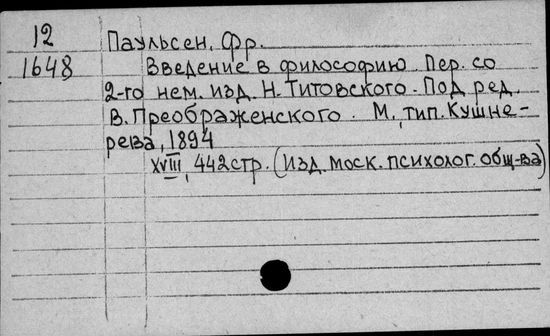 12
Паульсен, Фр.
1648
Введение в философию. Пер. со
2-го нем. изд. Н. Титовского. Под ред.
В. Преображенского. М., тип. Кушне-
рева, 1894
XVIII, 442 стр. (Изд. моск. психолог. общ-ва)